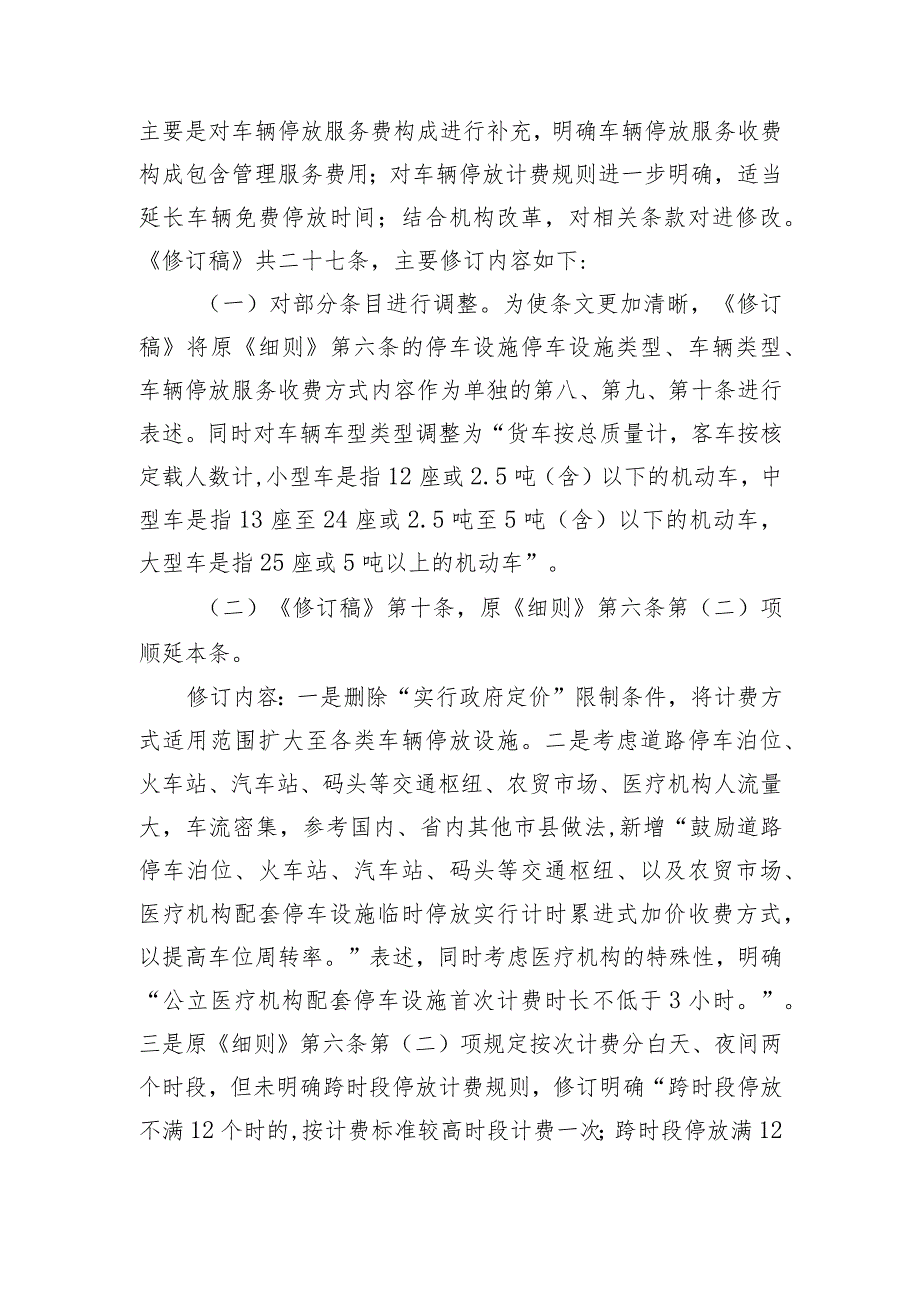 主要是对车辆停放服务费构成进行补充，明确车辆停放服务收费
构成包含管理服务费用；对车辆停放计费规则进一步明确，适当
延长车辆免费停放时间；结合机构改革，对相关条款对进修改。
《修订稿》共二十七条，主要修订内容如下:
（一）对部分条目进行调整。为使条文更加清晰，《修订
稿》将原《细则》第六条的停车设施停车设施类型、车辆类型、
车辆停放服务收费方式内容作为单独的第八、第九、第十条进行
表述。同时对车辆车型类型调整为“货车按总质量计，客车按核
定载人数计,小型车是指12座或2.5吨（含）以下的机动车，中
型车是指13座至24座或2.5吨至5吨（含）以下的机动车，
大型车是指25座或5吨以上的机动车”。
（二）《修订稿》第十条，原《细则》第六条第（二）项
顺延本条。
修订内容：一是删除“实行政府定价”限制条件，将计费方
式适用范围扩大至各类车辆停放设施。二是考虑道路停车泊位、
火车站、汽车站、码头等交通枢纽、农贸市场、医疗机构人流量
大，车流密集，参考国内、省内其他市县做法,新增“鼓励道路
停车泊位、火车站、汽车站、码头等交通枢纽、以及农贸市场、
医疗机构配套停车设施临时停放实行计时累进式加价收费方式，
以提高车位周转率。”表述，同时考虑医疗机构的特殊性，明确
“公立医疗机构配套停车设施首次计费时长不低于3小时。”。
三是原《细则》第六条第（二）项规定按次计费分白天、夜间两
个时段，但未明确跨时段停放计费规则，修订明确“跨时段停放
不满12个时的,按计费标准较高时段计费一次；跨时段停放满12